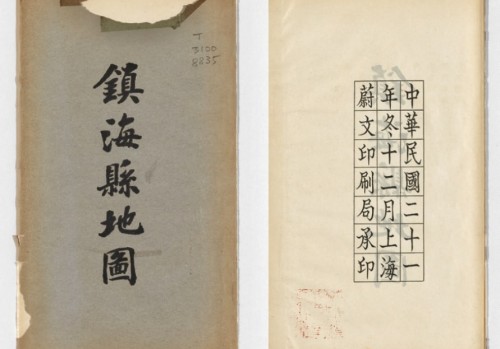 鎮海縣地圖
T
3100
8235
中華民國二十一
年冬、十二月上海
蔚文印刷局承印